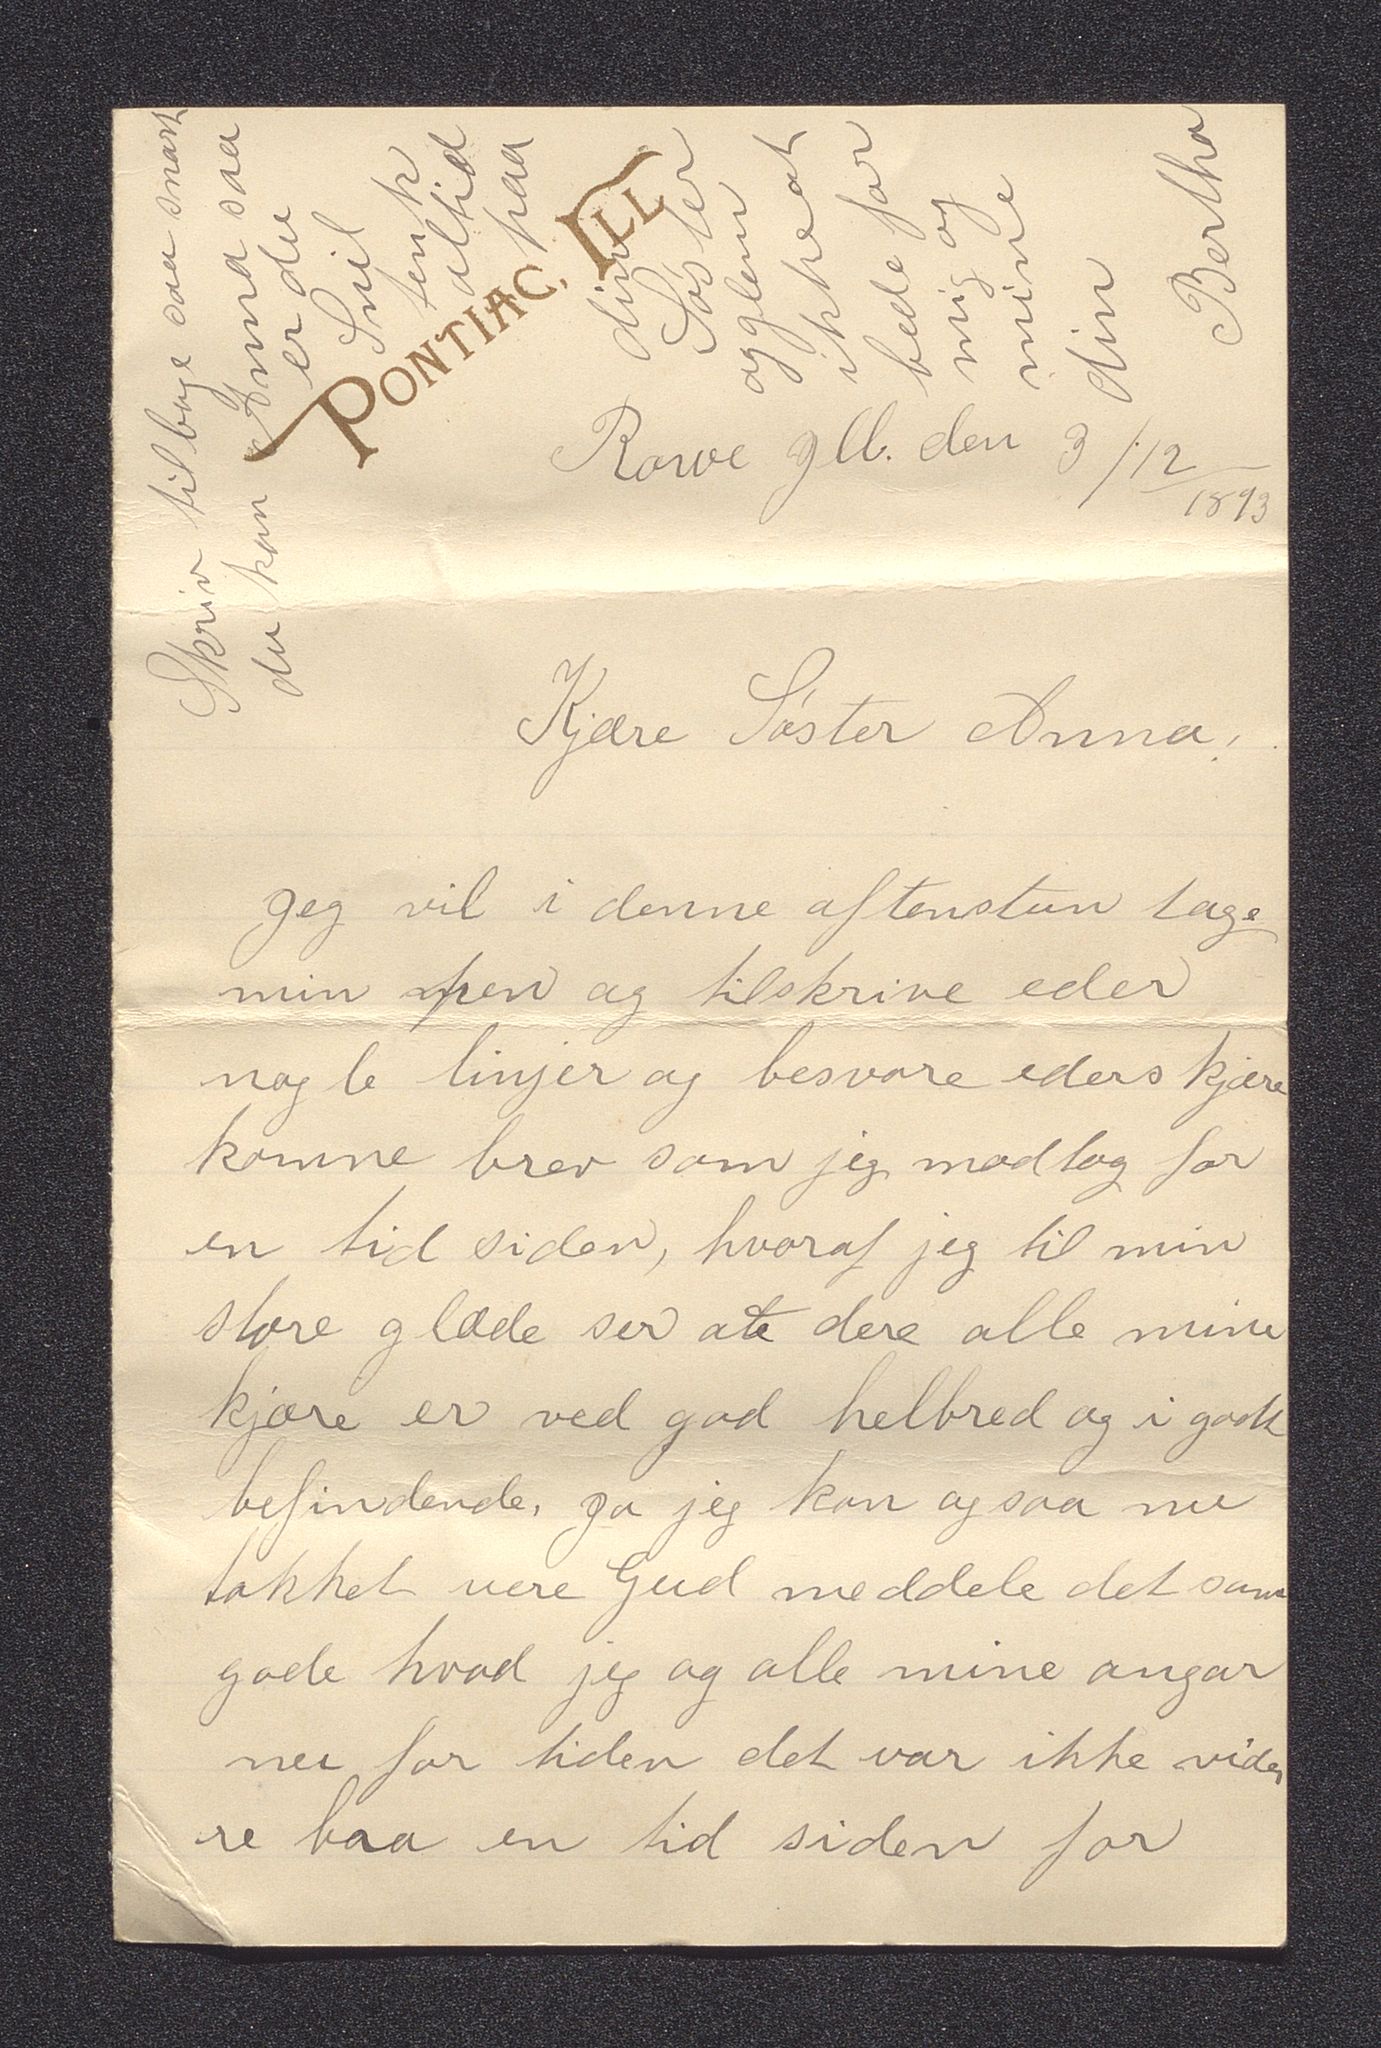 PONTIAC, ILL
Rowe Ill. den 3/12
1893
Kjære Søster Anna!
Jeg vil i denne aftenstun tage
min pen og tilskrive eder
nogle linjer og besvare eders kjære
komne brev som jeg modtog for
en tid siden, hvoraf jeg til min
store glæde ser at dere alle mine
kjære er ved god helbred og i godt
befindende, ja jeg kan ogsaa nu
takket være Gud meddele det samme
gode hvad jeg og alle mine angar
nu for tiden det var ikke vide
re braa en tid siden for
Skriv tilbage saa snart
du kan Anna saa
er du
Snil
tenk
altid
paa
din
Søster
og glem
ikke at
bede for
mig og
mine
din
Bertha